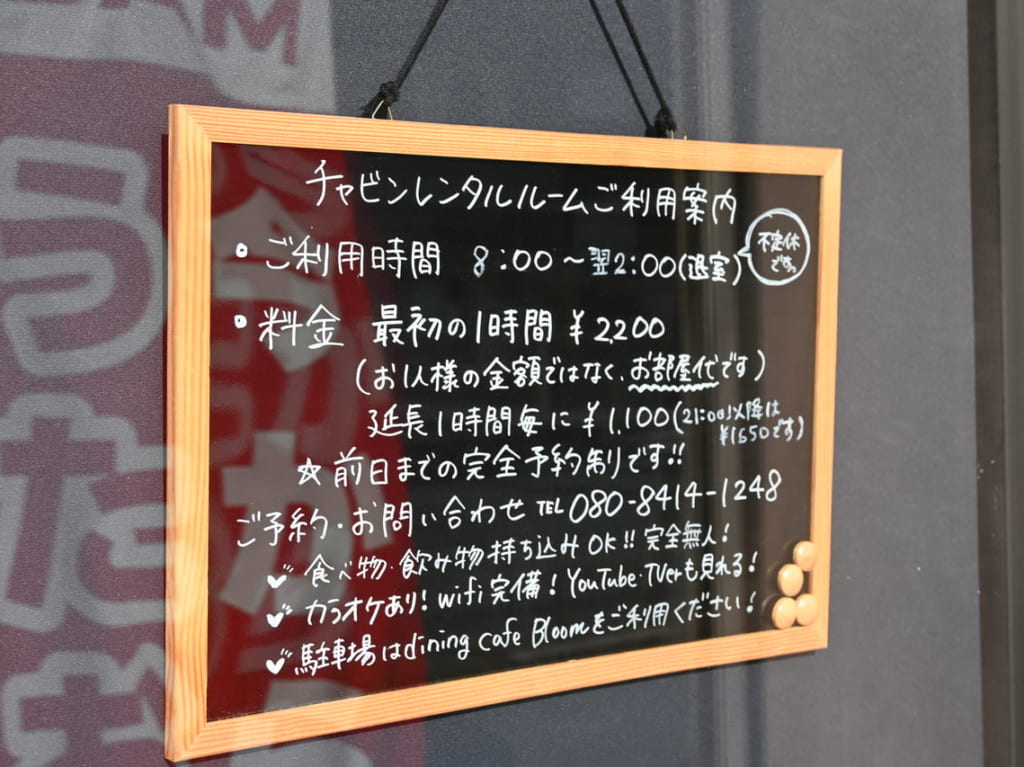 チャビンレンタルルームご利用案内
・ご利用時間 8:00〜翌2:00(退室)
不定休
です。
・料金 最初の1時間 ¥2,200
(お1人様の金額ではなく、お部屋代です)
延長1時間毎に ¥1,100(21:00以降は
¥1650です)
☆前日までの完全予約制りです!!
ご予約・お問い合わせ TEL 080-8414-1248
食べ物・飲み物持ち込みOK!! 完全無人!
カラオケあり! wifi完備! YouTube・TVerも見れる!
駐車場はdining cafe Bloomをご利用ください!